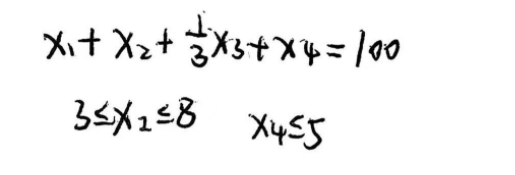 x₁ + x₂ + 1/3 x₃ + x₄ = 100
3 ≤ x₂ ≤ 8 x₄ ≤ 5